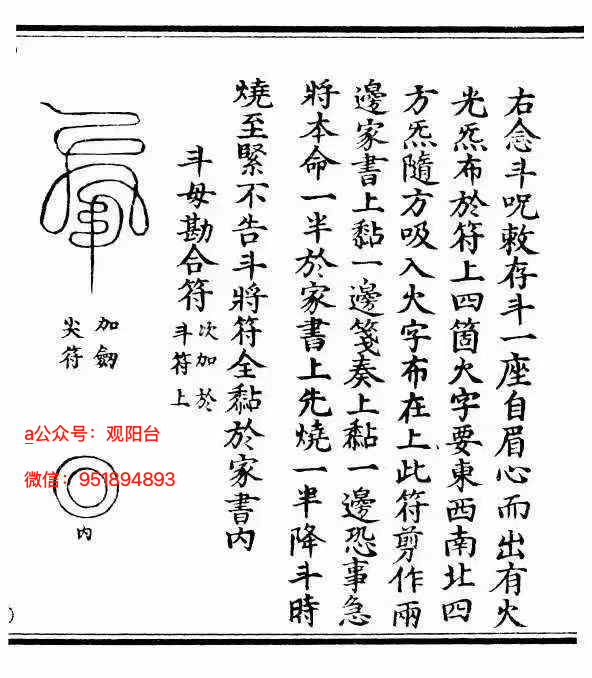 右念斗呪敕存斗一座自眉心而出有火
光炁布於符上四箇火字要東西南北四
方炁隨方吸入火字布在上此符剪作兩
邊家書上黏一邊箋奏上黏一邊恐事急
將本命一半於家書上先燒一半降斗時
燒至緊不告斗將符全黏於家書內
斗母勘合符
次加於
斗符上
加劒
尖符
内
a公众号：观阳台
微信：951894893